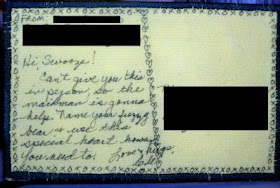 FROM:
Hi Swooze!
Can't give you this
in person, so the
mailman is gonna
help. Name your fuzzy
bear & use this
special heart however
you need to. Love & hugs,